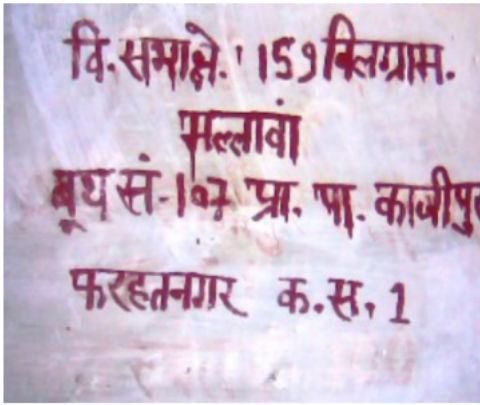 वि.सभाक्षे. 159 बिलग्राम.
मल्लावां
बूथ सं-107 प्रा. पा. काजीपुर
फरहतनगर क.स. 1